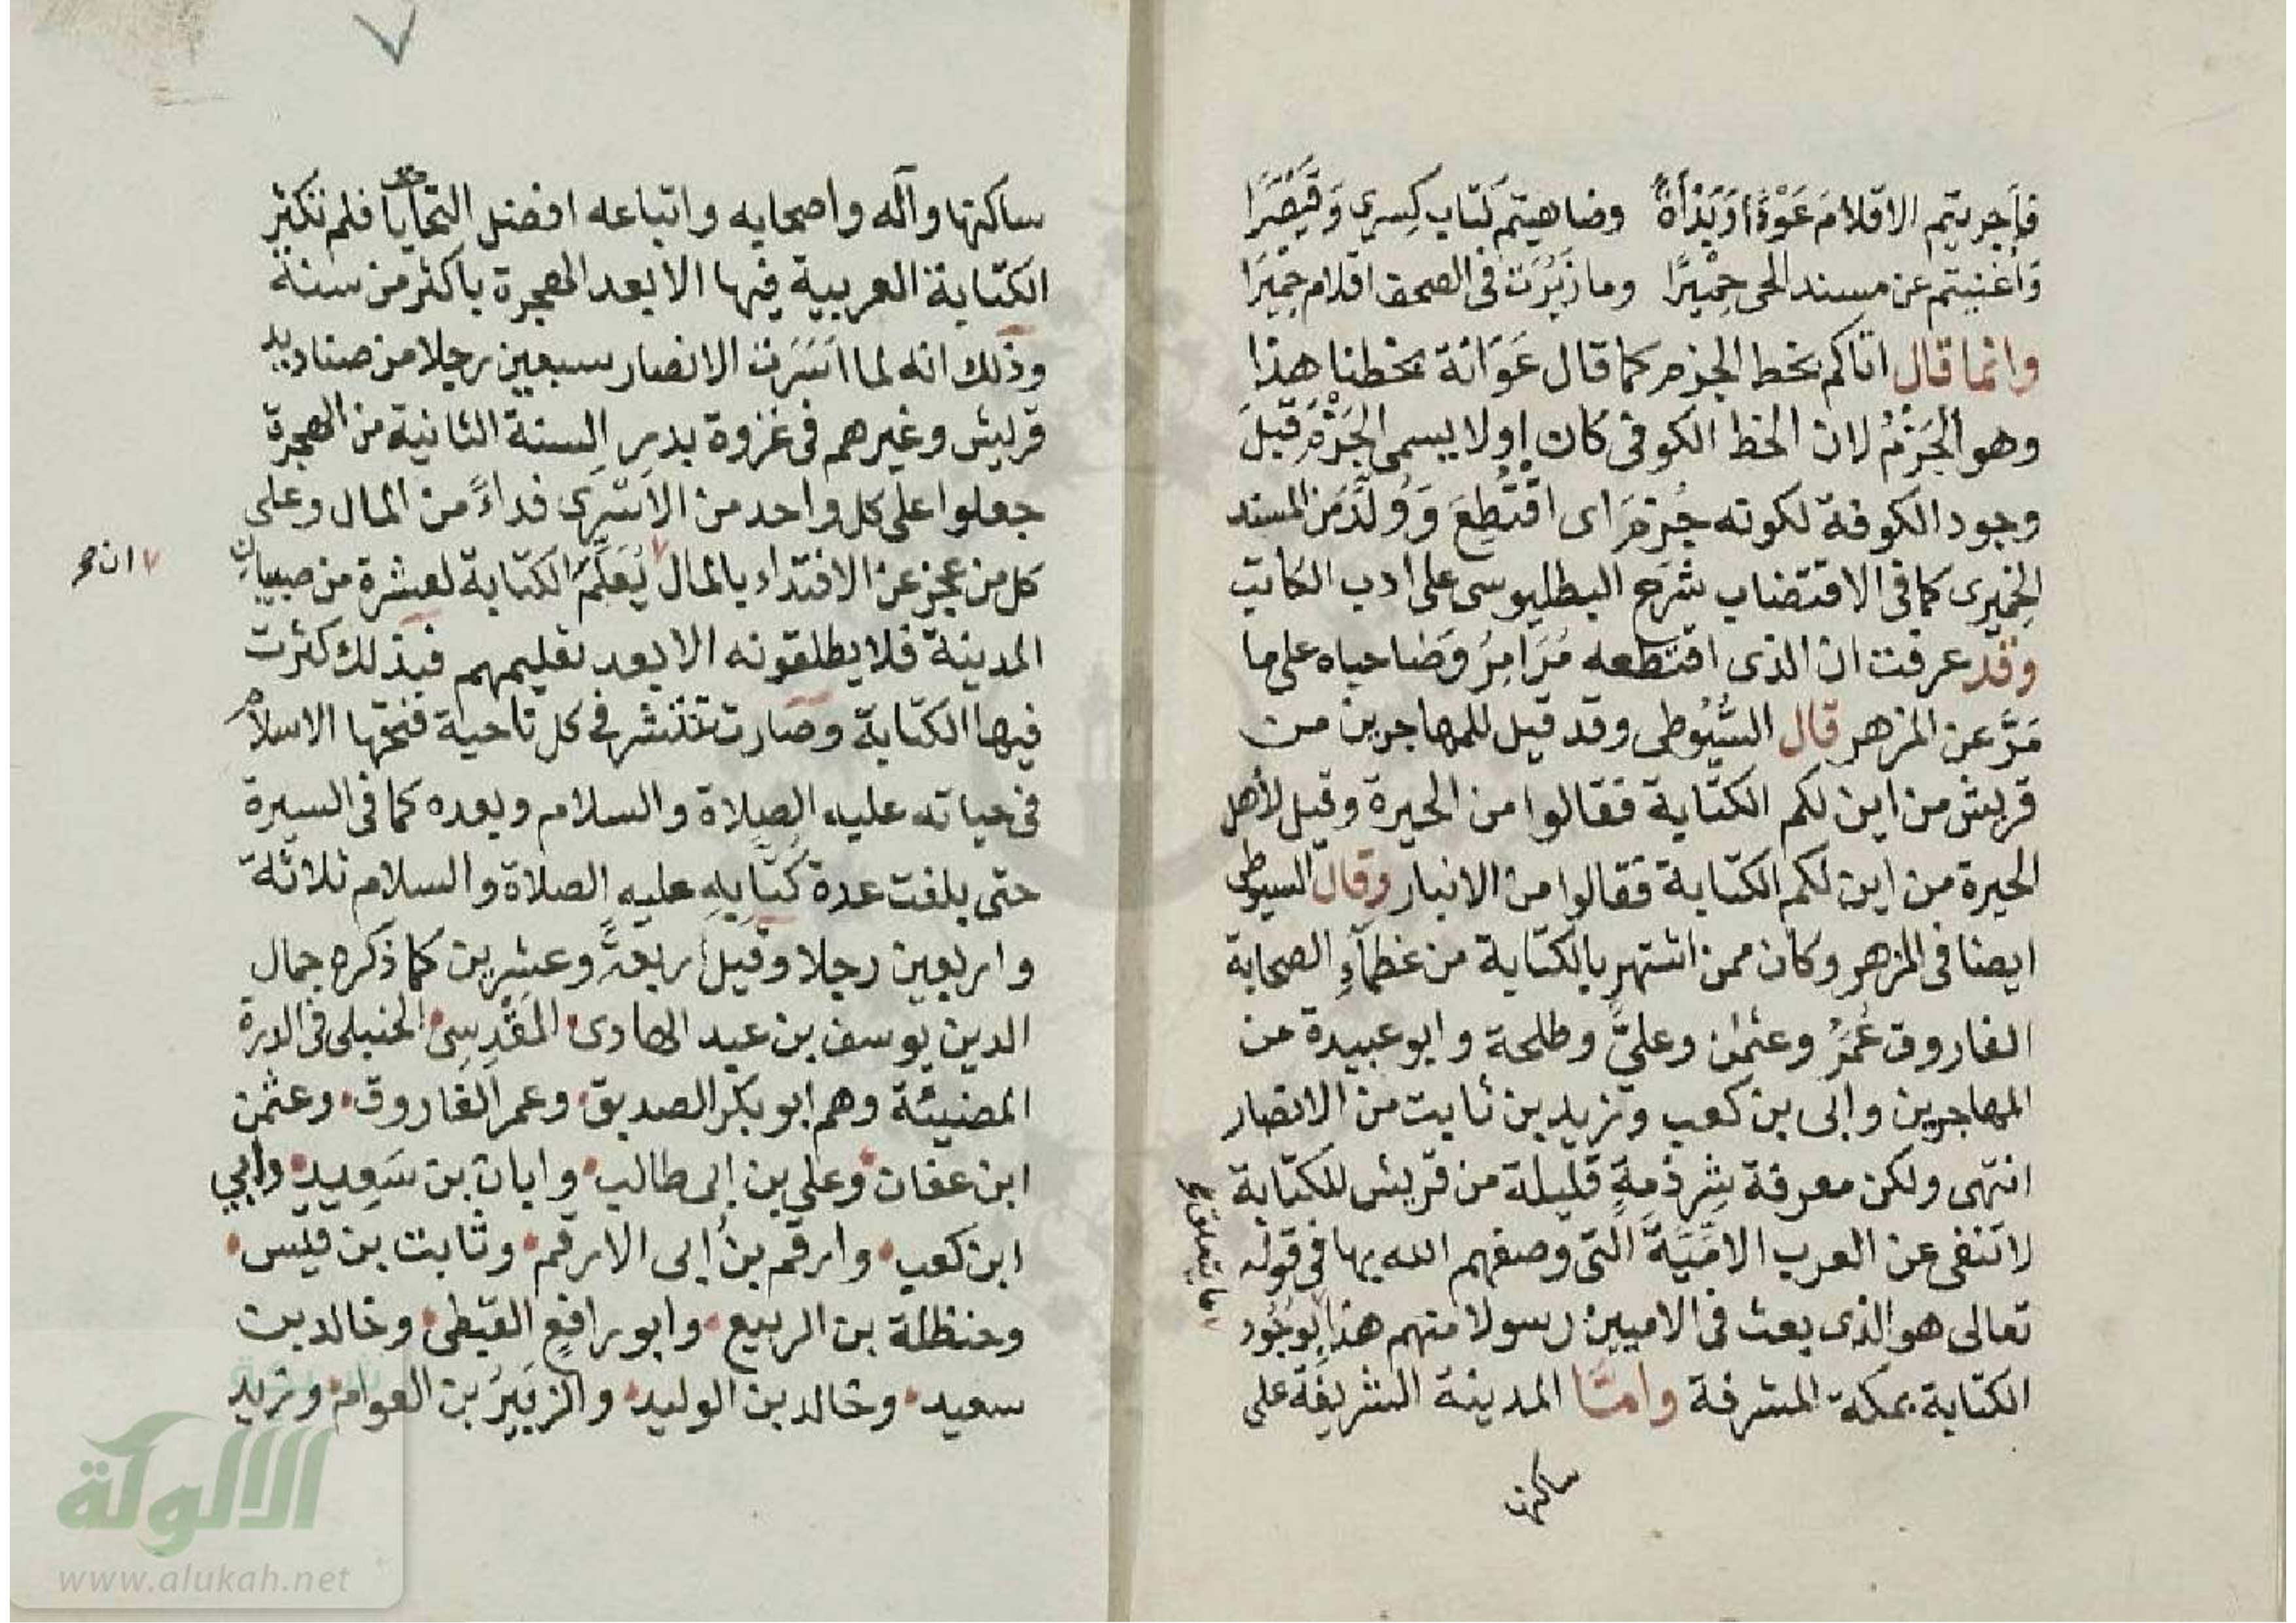 فأجريتم الاقلامَ عَوْدًا وَبَدْأَةً وضاهيتم كتاب كِسرى وَقَيْصَرَا
وَأغنيتم عن مسند الحى حِمْيَرًا وما زَبَرَت فى الصحف اقلام حِمْيَرَا
وانما قال اتاكم بخط الجزم كما قال عَوَانَة بخطنا هذا
وهو الجَزْمُ لان الخط الكوفى كان اولا يسمى الجَزْمَ قبل
وجود الكوفة لكونه جُزِمَ اى اقْتُطِعَ وَوُلِّدَ من المسند
الحِمْيَرى كما فى الاقتضاب شَرْح البطليوسى على ادب الكاتب
وقد عرفت ان الذى اقتطعه مُرَامِرُ وَصَاحباه على ما
مَرَّ عن المزهر قال السُّيُوطى وقد قيل للمهاجرين من
قريش من اين لكم الكتابة فقالوا من الحيرة وقيل لأهل
الحيرة من اين لكم الكتابة فقالوا من الانبار وقال السيوطى
ايضا فى المزهر وكان ممن اشتهر بالكتابة من عظمآءِ الصحابة
الفاروق عُمَرُ وعثمٰن وعلىٌّ وطلحة وابو عبيدة من
المهاجرين وابى بن كعب وزيد بن ثابت من الانصار
انتهى ولكن معرفة شِرذمةٍ قليلة من قريش للكتابة
لا تنفى عن العرب الامِّيَّةَ التى وصفهم الله بها فى قوله
تعالى هو الذى بعث فى الاميين رسولا منهم هذا بوجُود
الكتابة بمكة المشرفة وامّا المدينة الشريفة على
ساكنها
ساكنها وآله واصحابه واتباعه افضل التحايا فلم تكثر
الكتابة العربية فيها الا بعد الهجرة باكثر من سنة
وذلك انه لما اَسَرَت الانصار سبعين رجلا من صناديد
قريش وغيرهم فى غزوة بدرِ السنة الثانية من الهجرة
جعلوا على كل واحد من الاَسْرَى فداءً من المال وعلى
كل من عجز عن الافتداء بالمال يُعَلِّمَ الكتابة لعشرة من صبيان
ان صح
المدينة فلا يطلقونه الا بعد تعليمهم فبذلك كثرت
فيها الكتابة وصارت تنتشر فى كل ناحية فتحها الاسلام
فى حياته عليه الصلاة والسلام وبعده كما فى السيرة
حتى بلغت عدة كُتَّابِهِ عليه الصلاة والسلام ثلاثة
واربعين رجلا وقيل اربعةً وعشرين كما ذكره جمال
الدين يوسف بن عبد الهادى المَقْدِسِى الحنبلى فى الدرة
المضيئة وهم ابو بكر الصديق وعمر الفاروق وعثمٰن
ابن عفان وعلى بن ابى طالب وابان بن سَعِيد وأبي
ابن كعب وارقم بنُ ابى الارقم وثابت بن قيس
وحنظلة بن الربيع وابو رافعٍ القبطى وخالد بن
سعيد وخالد بن الوليد والزبيرُ بن العوام وزيد
الالوكة
www.alukah.net